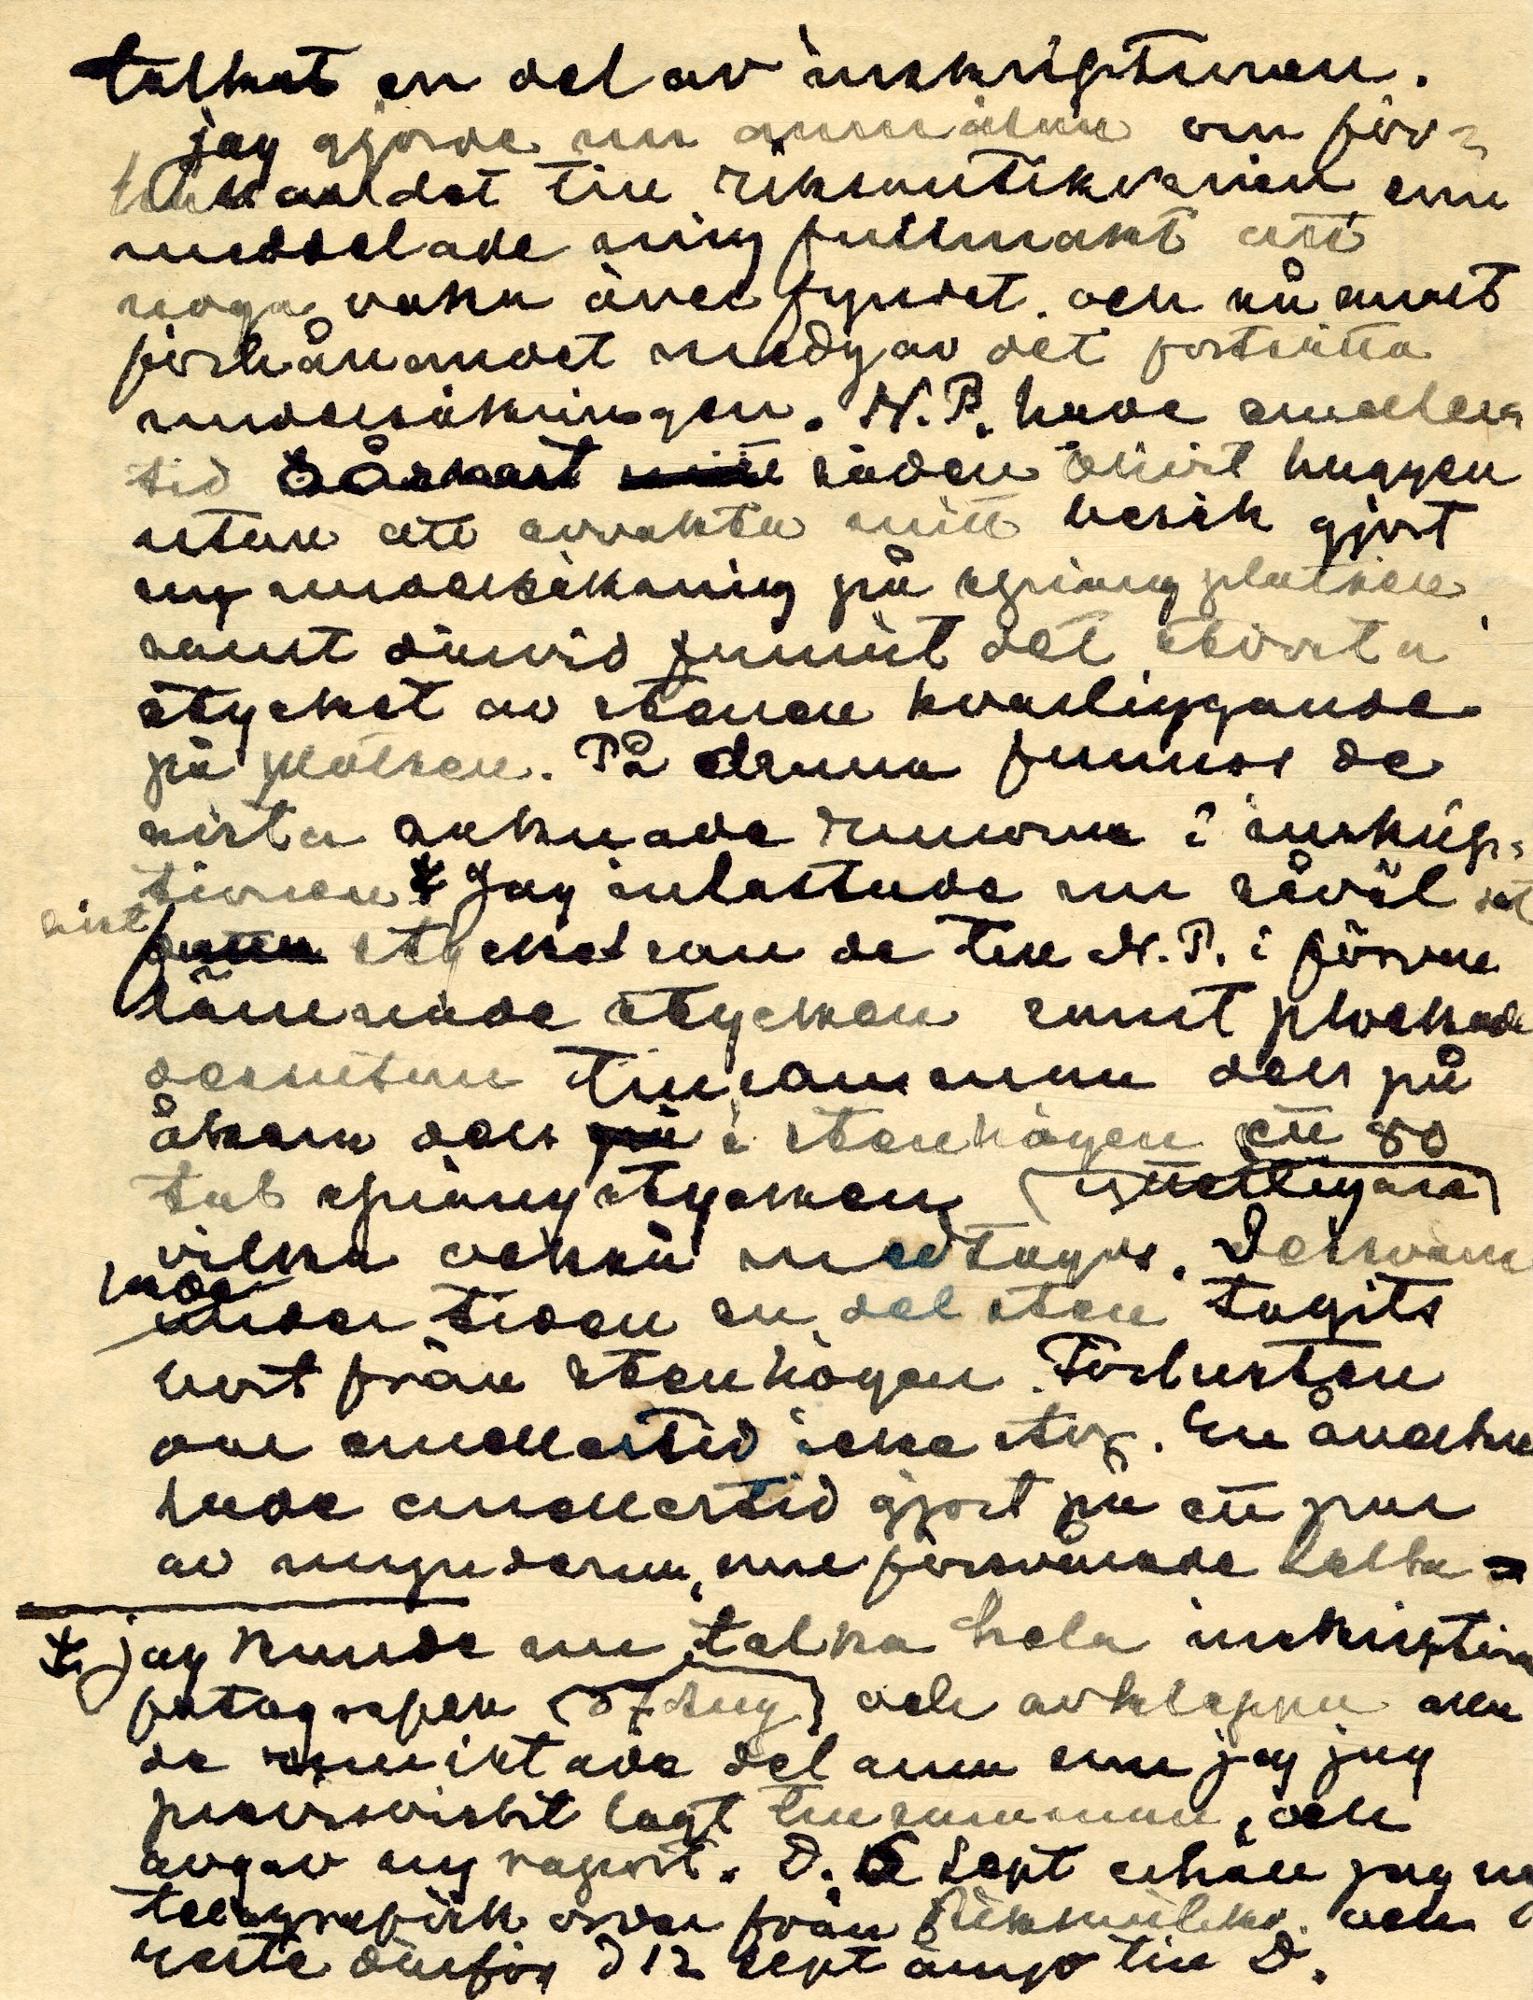 tolkat en del av inskriptionen.
jag gjorde nu anmälan om för-
hållandet till riksantikvarien som
meddelade mig fullmakt att
noga vaka över fyndet. och så snart
förhållandet medgav det fortsätta
undersökningen. N.P. hade emeller
tid såsnart säden blivit huggen
utan att avvakta mitt besök gjort
ny undersökning på sprängplatsen
samt därvid funnit det största
stycket av stenen kvarliggande
på platsen. På denna funnos de
sista saknade runorna i inskrip-
tionen * Jag inlastade nu såväl det
sist
stycket som de till N.P. i förvar
lämnade stycken samt plockade
dessutom tillsamman dels på
åkern dels i stenhögen ett 80
tal sprängstycken (ytterligare)
vilka också medtogos. Dessvärre
hade
under tiden en del sten tagits
bort från stenhögen. Förlusten
var emellertid icke stor. En
hade emellertid gjort på ett par
av försvårade
* jag kunde nu tolka hela inskription
fotografera och avklappa av
de runristade delarna som jag jag
provisoriskt lagt tillsamman, och
avgav ny raport. D. 6 Sept erhöll jag
telegrafisk svar från och
reste därför d 12 sept ånyo till D.